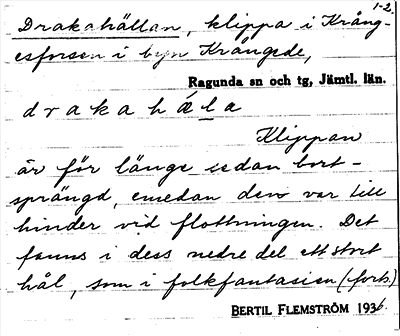 1-2.
Drakahällan, klippa i Krång-
esforsen i byn Krångede,
Ragunda sn och tg, Jämtl. län.
drakahä́la
Klippan
är för länge sedan bort-
sprängd, emedan den var till
hinder vid flottningen. Det
fanns i dess nedre del ett stort
hål, som i folkfantasien (forts.)
BERTIL FLEMSTRÖM 1936.